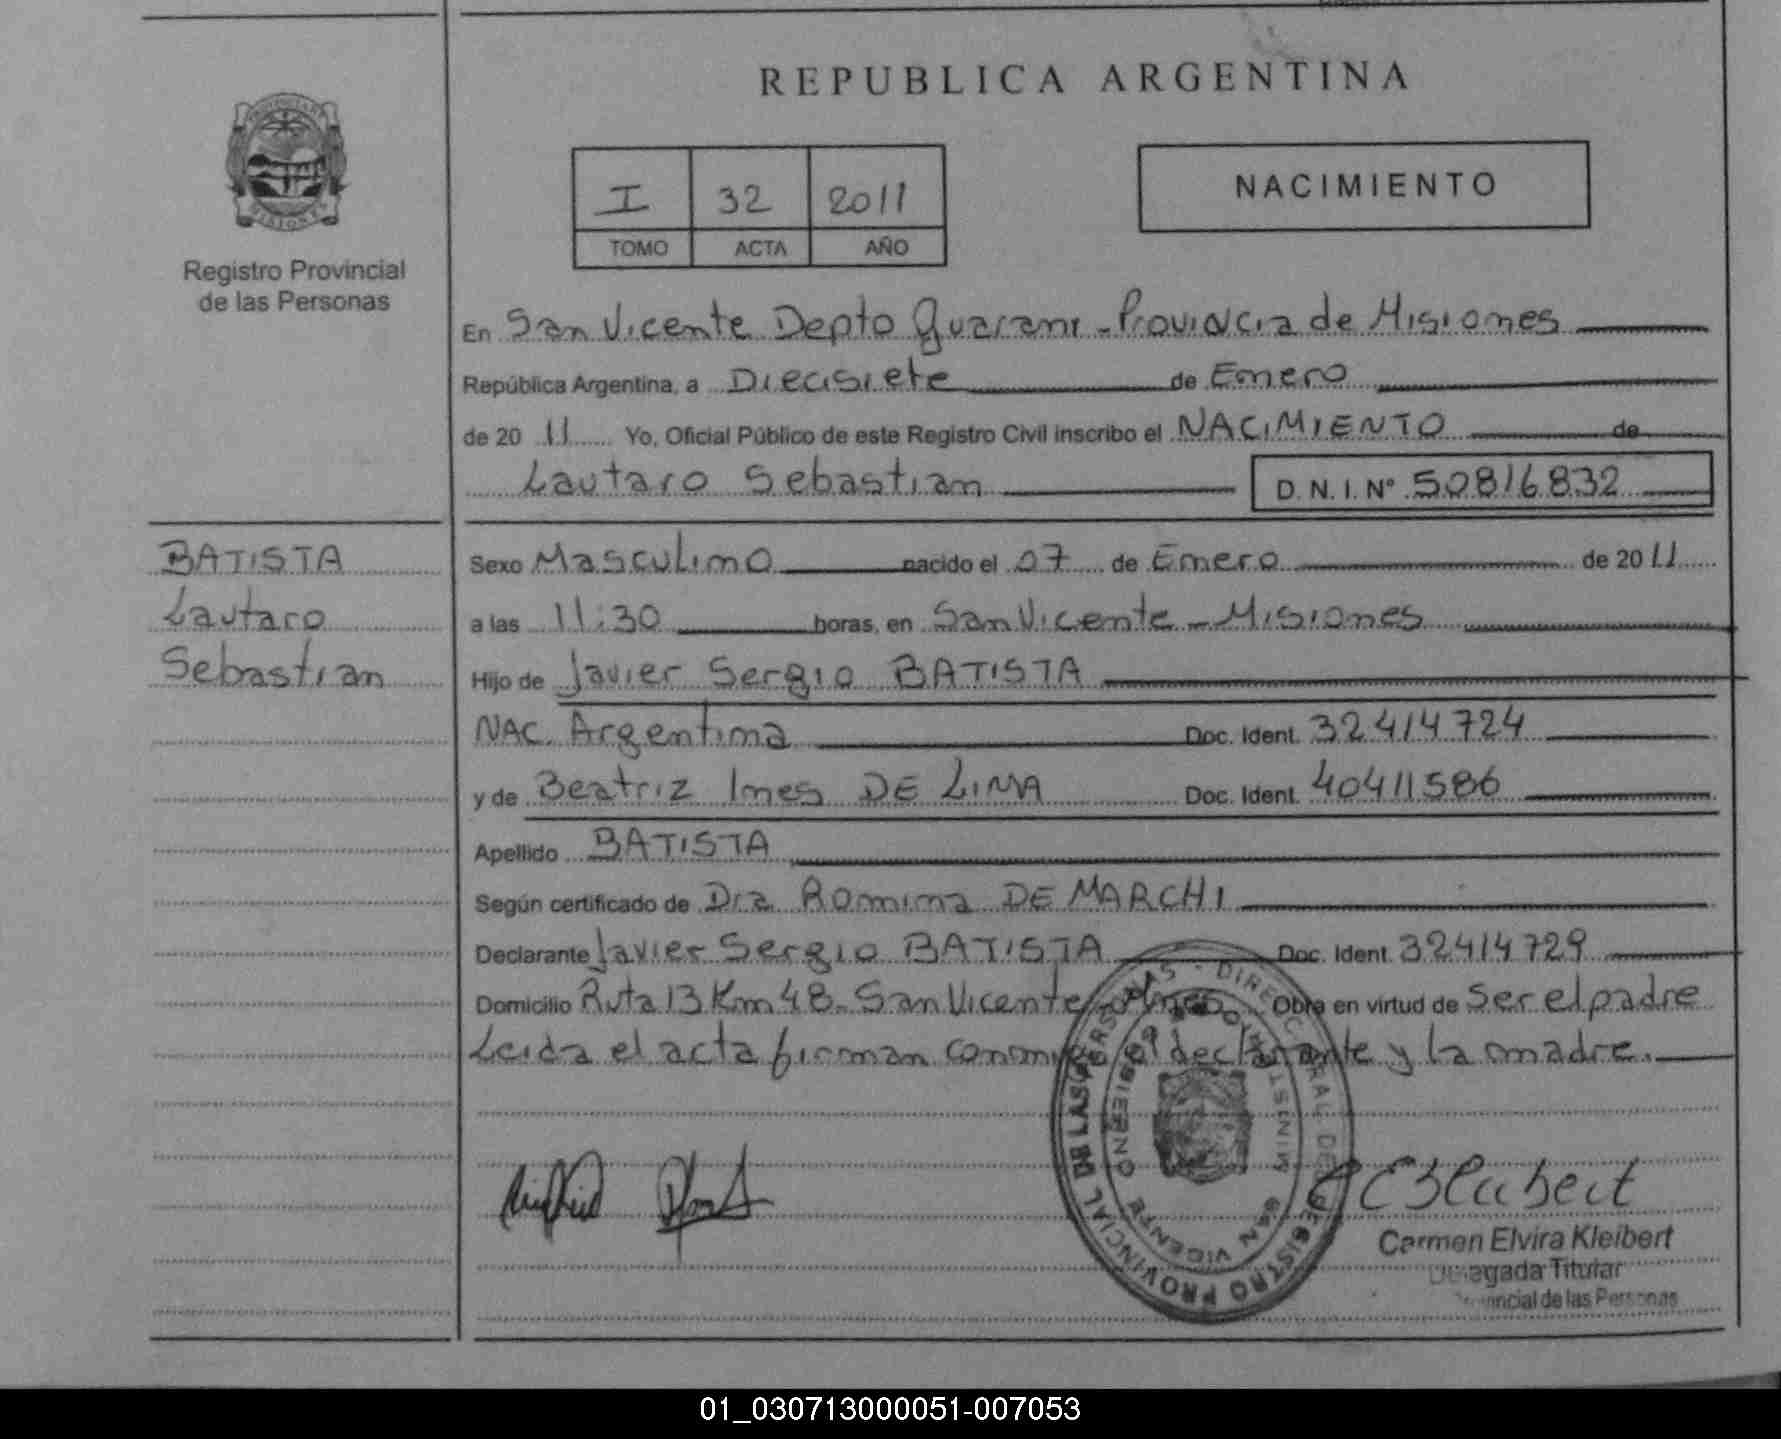 REPUBLICA ARGENTINA
I 32 2011
TOMO ACTA AÑO
NACIMIENTO
PROVINCIA DE MISIONES
Registro Provincial
de las Personas
En San Vicente Depto Guarani - Provincia de Misiones
República Argentina, a Diecisiete de Enero
de 20 11 Yo, Oficial Público de este Registro Civil inscribo el NACIMIENTO de
Lautaro Sebastian D.N.I. Nº 50816832
BATISTA
Lautaro
Sebastian
Sexo Masculino nacido el 07 de Enero de 20 11
a las 11:30 horas, en San Vicente - Misiones
Hijo de Javier Sergio BATISTA
NAC. Argentina Doc. Ident. 32414724
y de Beatriz Ines DE LIMA Doc. Ident. 40411586
Apellido BATISTA
Según certificado de Dra Romina DE MARCHI
Declarante Javier Sergio BATISTA Doc. Ident. 32414729
Domicilio Ruta 13 Km 48 - San Vicente - Mnes Obra en virtud de Ser el padre
Leida el acta firman conmigo el declarante y la madre.
REGISTRO PROVINCIAL DE LAS PERSONAS - DIRECC GRAL DEL
MINISTERIO DE GOBIERNO
SAN VICENTE
Carmen Elvira Kleibert
Delegada Titular
Provincial de las Personas
01_030713000051-007053